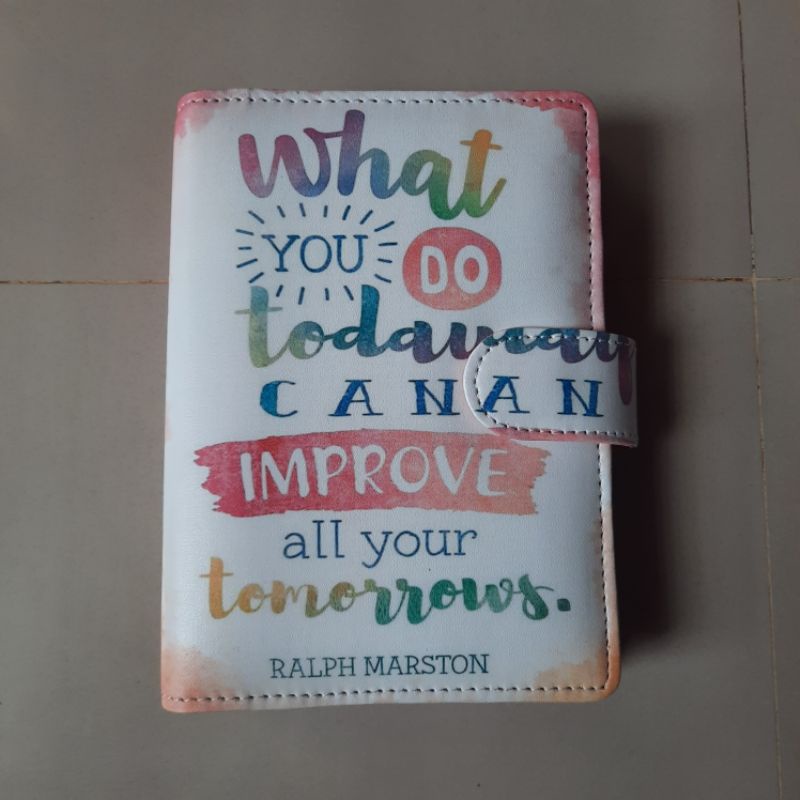 What
YOU DO
today day
CAN AN
IMPROVE
all your
tomorrows.
RALPH MARSTON